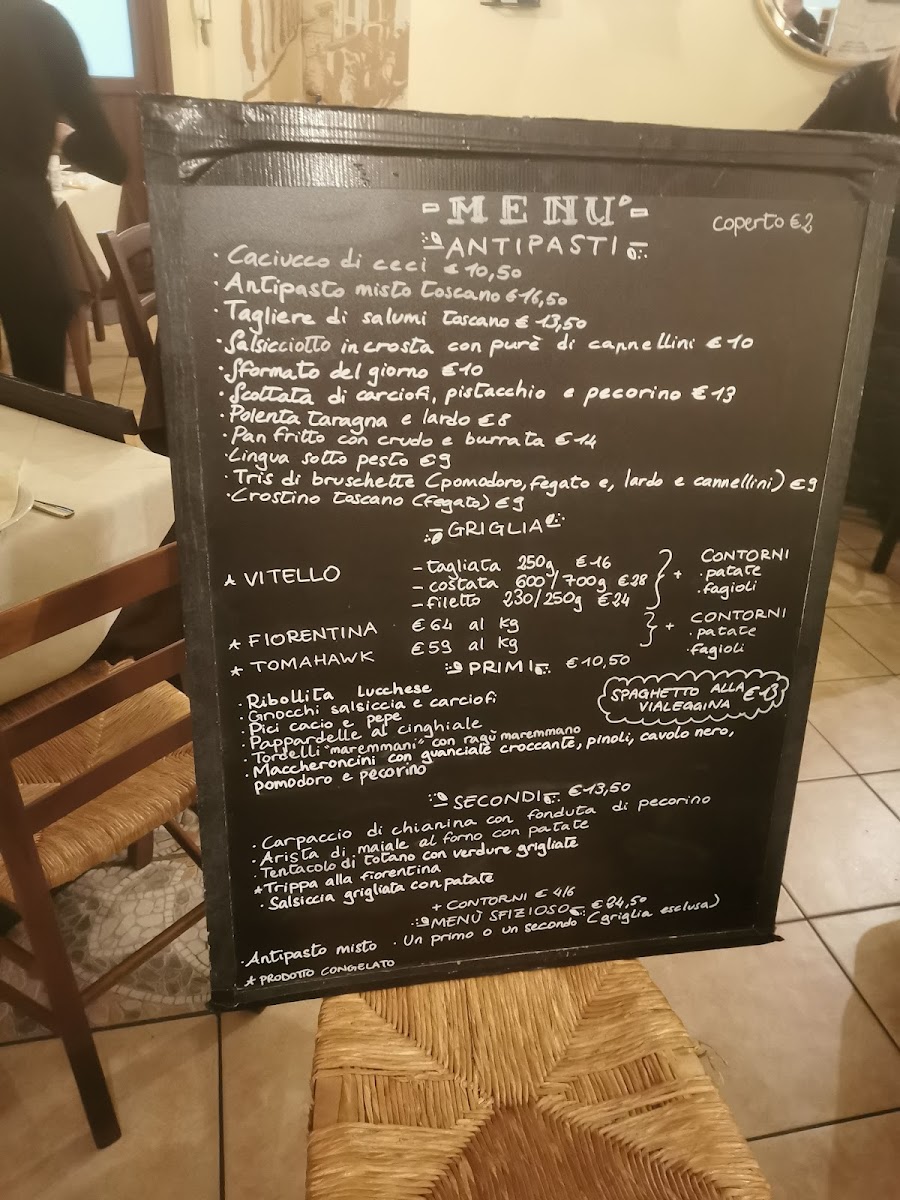 MENU'
coperto € 2
ANTIPASTI
· Caciucco di ceci € 10,50
· Antipasto misto toscano € 16,50
· Tagliere di salumi toscano € 13,50
· Salsicciotto in crosta con purè di cannellini € 10
· Sformato del giorno € 10
· Scottata di carciofi, pistacchio e pecorino € 13
· Polenta taragna e lardo € 8
· Pan fritto con crudo e burrata € 14
· Lingua sotto pesto € 9
· Tris di bruschette (pomodoro, fegato e, lardo e cannellini) € 9
· Crostino toscano (fegato) € 9
GRIGLIA
* VITELLO
- tagliata 250g € 16
- costata 600/700g € 28
- filetto 230/250g € 24
+ CONTORNI
· patate
· fagioli
* FIORENTINA € 64 al kg
* TOMAHAWK € 59 al kg
+ CONTORNI
· patate
· fagioli
PRIMI € 10,50
· Ribollita Lucchese
· Gnocchi salsiccia e carciofi
· Pici cacio e pepe
· Pappardelle al cinghiale
· Tordelli "maremmani" con ragù maremmano
· Maccheroncini con guanciale croccante, pinoli, cavolo nero,
pomodoro e pecorino
SPAGHETTO ALLA
VIALEGGINA € 13
SECONDI € 13,50
· Carpaccio di chianina con fonduta di pecorino
· Arista di maiale al forno con patate
· Tentacolo di totano con verdure grigliate
* Trippa alla fiorentina
· Salsiccia grigliata con patate
+ CONTORNI € 4/6
MENÙ SFIZIOSO € 24,50
· Antipasto misto · Un primo o un secondo (griglia esclusa)
* PRODOTTO CONGELATO